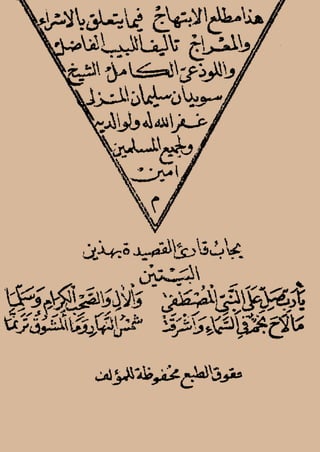 هذا مطلع الابتهاج فيما يتعلق بالاسراء
والمعراج تأليف اللبيب الفاضل
واللوذعى الكامل الشيخ
سويدان سليمان المنزلى
غفر الله له ولوالديه
ولجميع المسلمين
امين
م
يجاب قارئ القصيدة بهذين
البيتين
يا رب صل على النبي المصطفى والآل والصحب الكرام وسلما
ما لاح نجم في السماء واشرقت شمس النهار وما المشوق ترنما
حقوق الطبع محفوظة للمؤلف